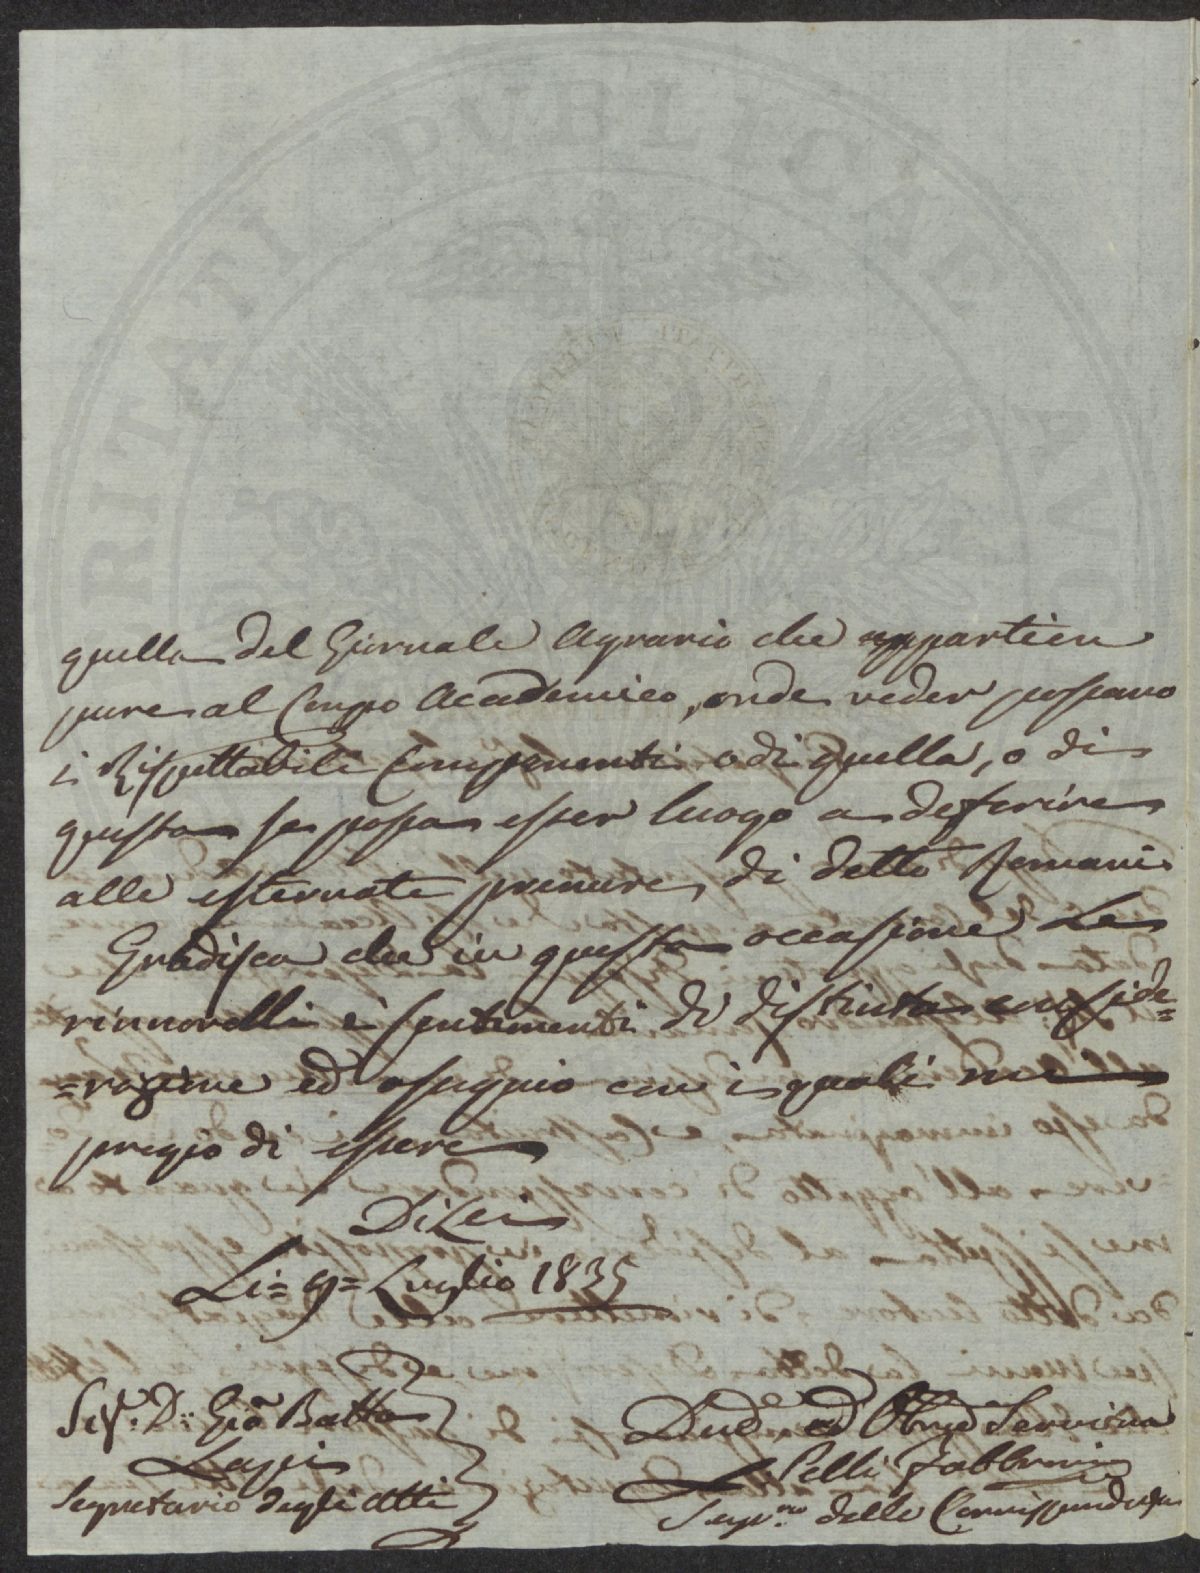 quella del Giornale Agrario che appartien
pure al Corpo Accademico, onde veder possano
i Rispettabili Componenti o di quella, o di
questa se possa esser luogo a deferire
alle esternate premure di detto Romani
Gradisca che in questa occasione Le
rinnovelli i sentimenti di distinta conside=
=razione ed ossequio con i quali me
pregio di essere
Di Lei
Li = 9 = Luglio 1835
Sig.r D.r Gio Batta
Segretario degli Atti
Dev.o ed Obbg.o Servitore
Lelli Fabbrini
Seg.rio delle Corrispondenze
AUCTORITATI PUBLICAE